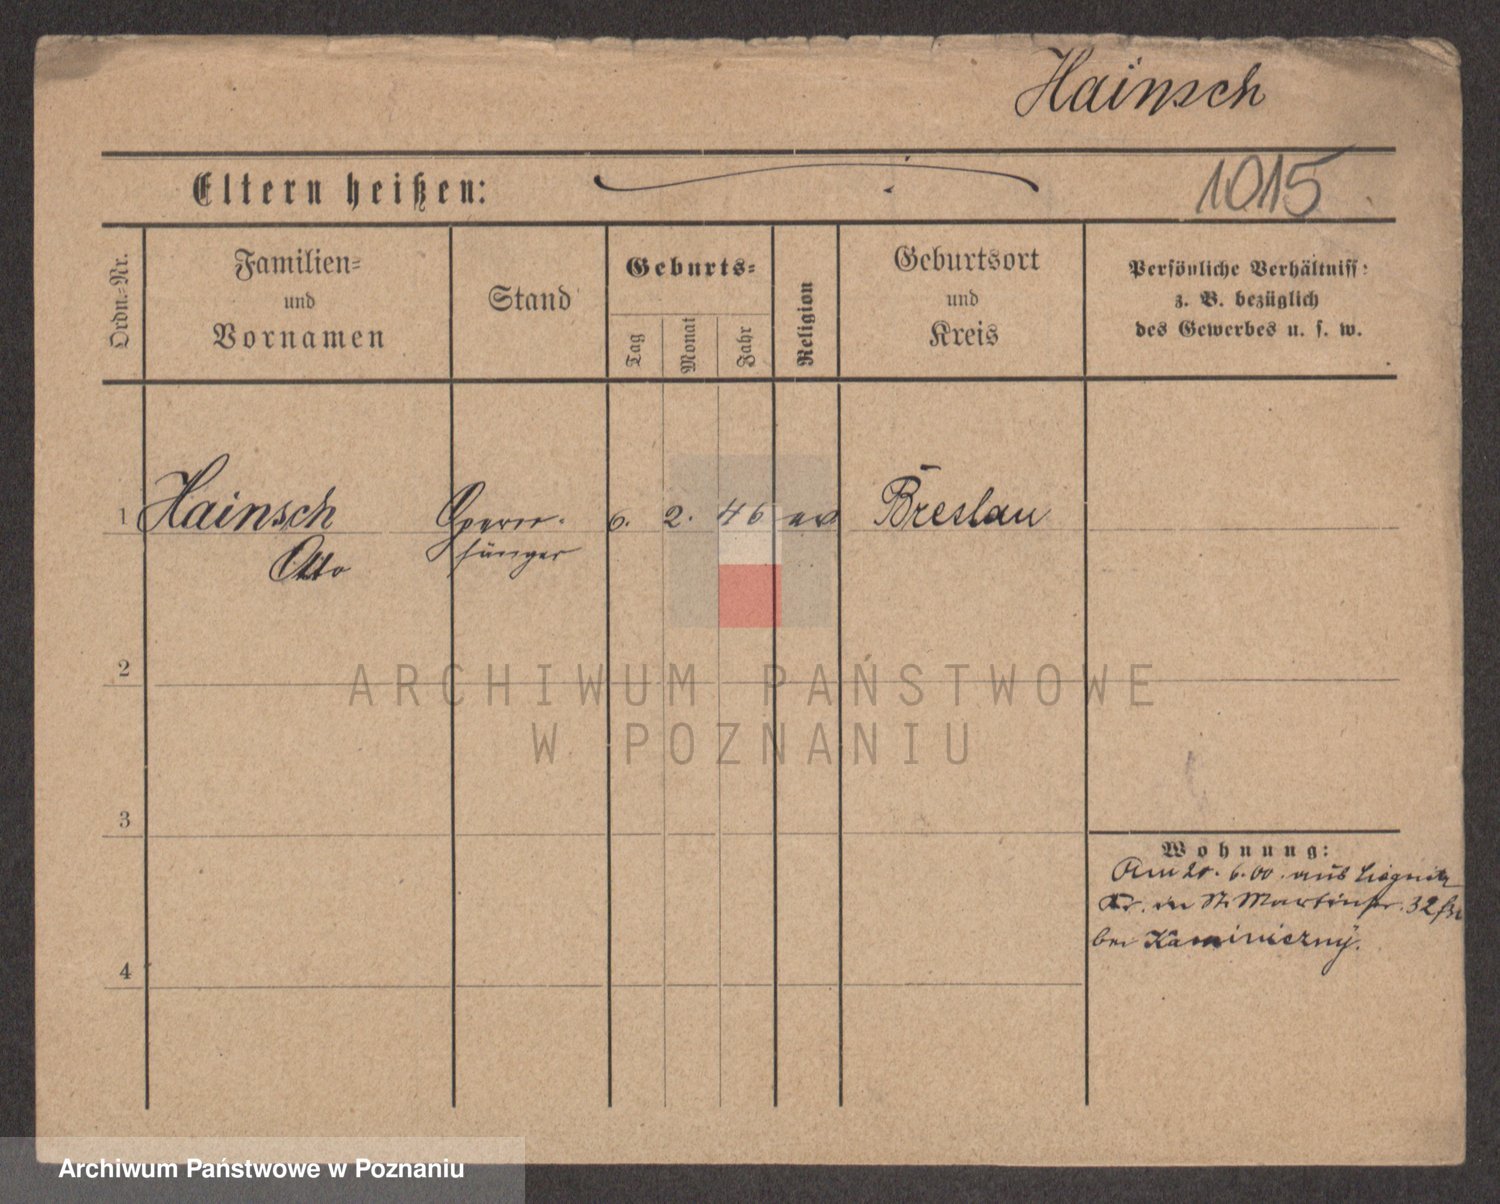 Hainsch
Eltern heißen:
1015
Ordn.-Nr.
Familien-
und
Vornamen
Stand
Geburts-
Tag
Monat
Jahr
Religion
Geburtsort
und
Kreis
Persönliche Verhältniss:
z. B. bezüglich
des Gewerbes u. s. w.
1 Hainsch Opern- 6. 2. 46 ev Breslau
Otto sänger
2
ARCHIWUM PAŃSTWOWE
W POZNANIU
3
Wohnung:
Am 6.00. aus Liegnitz
St. Martinstr. 32
bei Kaminiczny.
4
Archiwum Państwowe w Poznaniu